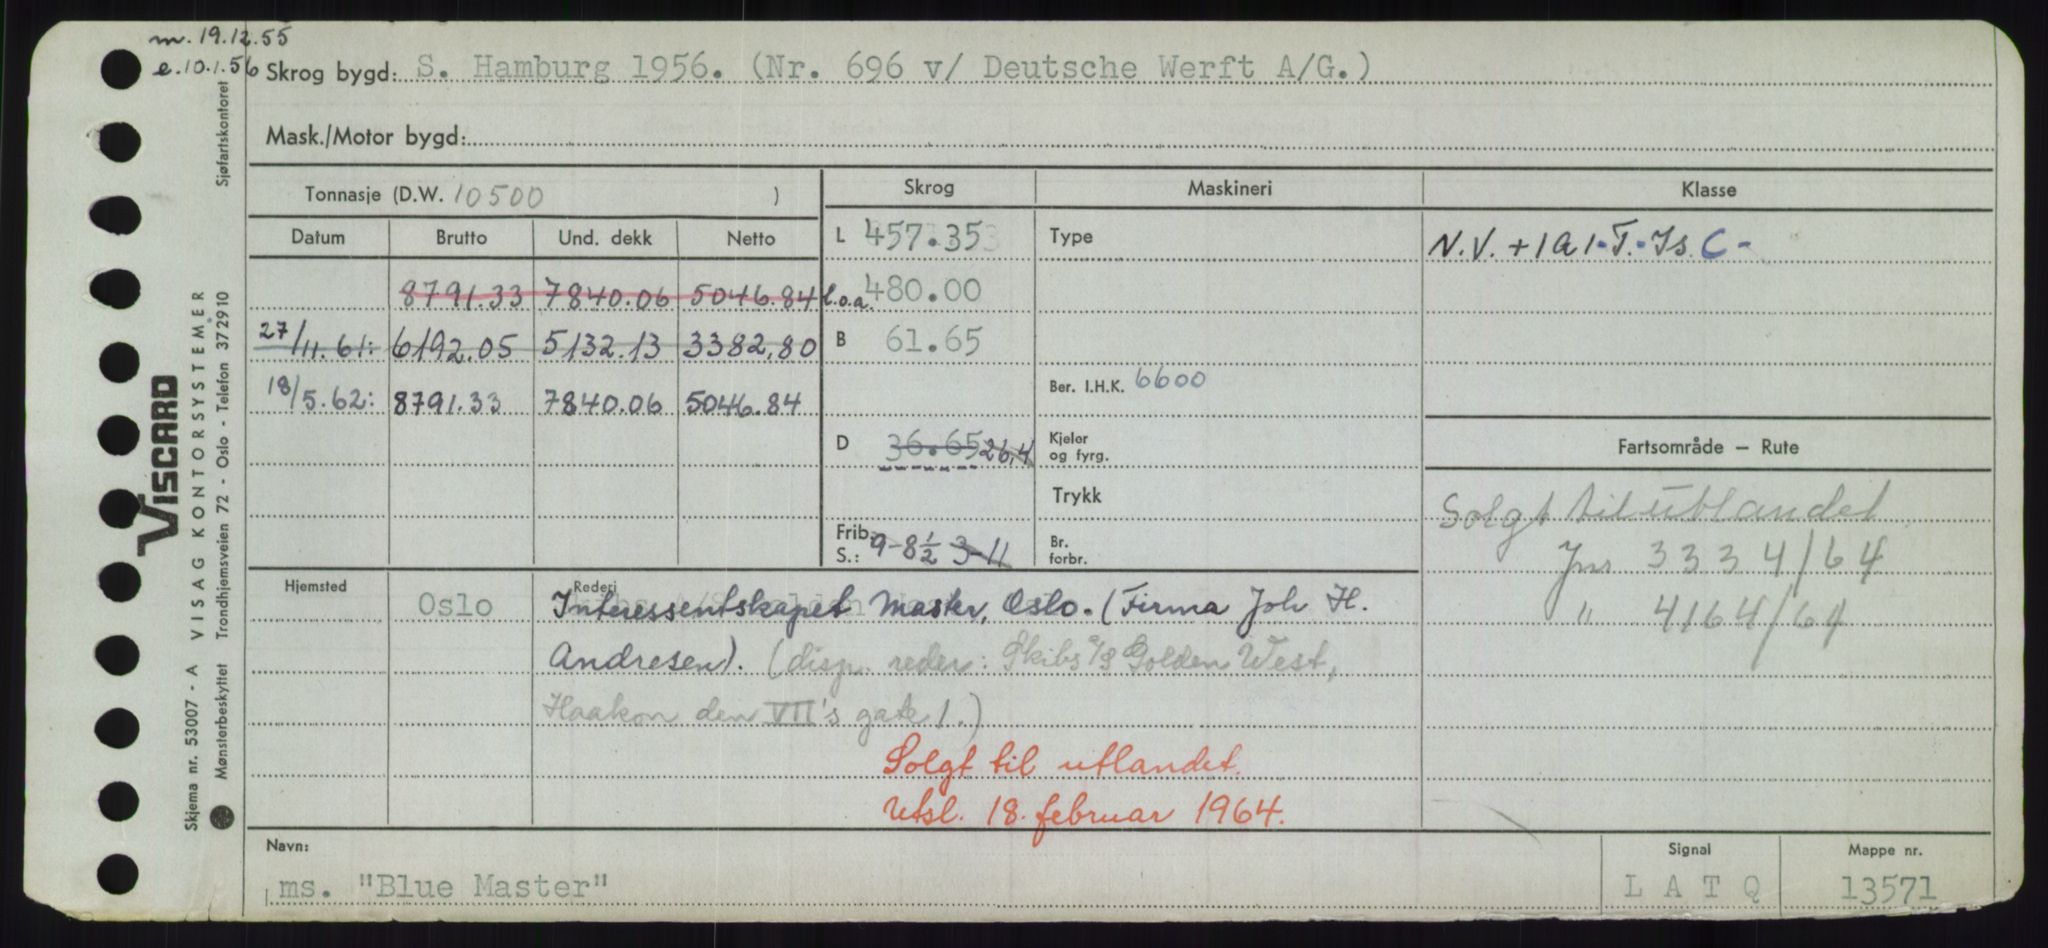 m. 19.12.55
e. 10.1.56
Skrog bygd: S. Hamburg 1956. (Nr. 696 v/ Deutsche Werft A/G.)
Mask./Motor bygd:
Tonnasje (D.W. 10500 )
Skrog Maskineri Klasse
Datum Brutto Und. dekk Netto
L 457.35 Type N.V. +1A1-T.-Is C-
8791.33 7840.06 5046.84 l.o.a. 480.00
27/11.61: 6192.05 5132.13 3382,80 B 61.65
18/5.62: 8791.33 7840.06 5046.84
Ber. I.H.K. 6600
D 36.65 26,4
Kjeler
og fyrg.
Fartsområde — Rute
Trykk
Solgt til utlandet
Frib.
S.: 9-8½ 3-11
Br.
forbr.
Jnr 3334/64
" 4164/64
Hjemsted
Oslo
Rederi
Interessentskapet Master, Oslo. (Firma Joh H.
Andresen). (disp. reder: Skibs A/S Golden West,
Haakon den VII's gate 1.)
Solgt til utlandet.
Utsl. 18. februar 1964.
Navn:
ms. "Blue Master"
Signal
LATQ
Mappe nr.
13571
Skjema nr. 53007 - A VISAG KONTORSYSTEMER
Mønsterbeskyttet Trondhjemsveien 72 - Oslo - Telefon 372910 Sjøfartskontoret
VISCARD